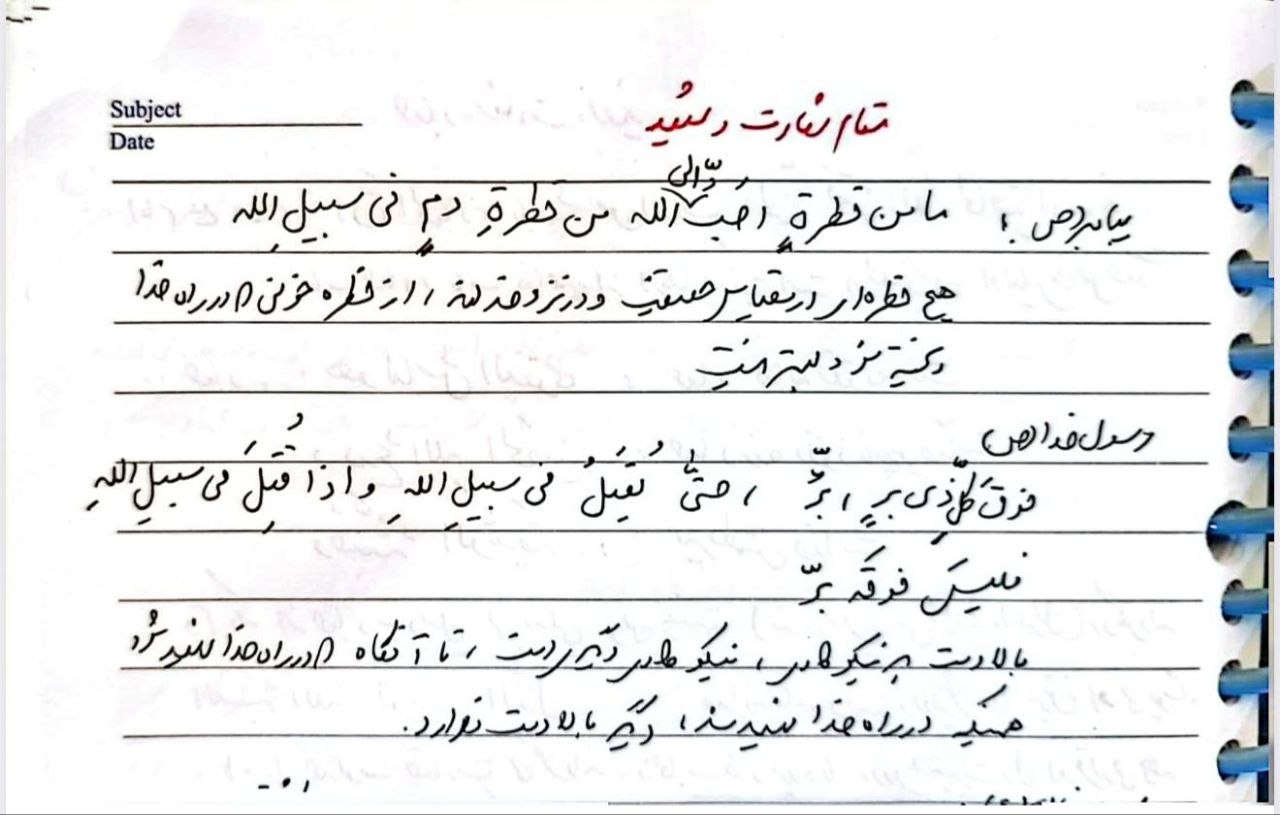 Subject
Date
مقام شهادت و شهید
پیامبر(ص): ما من قطرةٍ اَحَبُّ الی الله من قطرةِ دمٍ فی سبیلِ الله
هیچ قطره‌ای در مقیاس حقیقت و در نزد خدا، از قطره خونی که در راه خدا
ریخته شود بهتر نیست
رسول خدا (ص)
فوقَ کُلِّ ذی بِرٍّ، بِرٌّ، حتّی یُقتَلُ فی سبیلِ اللهِ و اذا قُتِلَ فی سبیلِ اللهِ
فلیسَ فوقَه بِرّ
بالادست هر نیکوکاری، نیکوکاری دیگری است، تا آنگاه که در راه خدا شهید شود
همینکه در راه خدا شهید شد، دیگر بالادست ندارد.